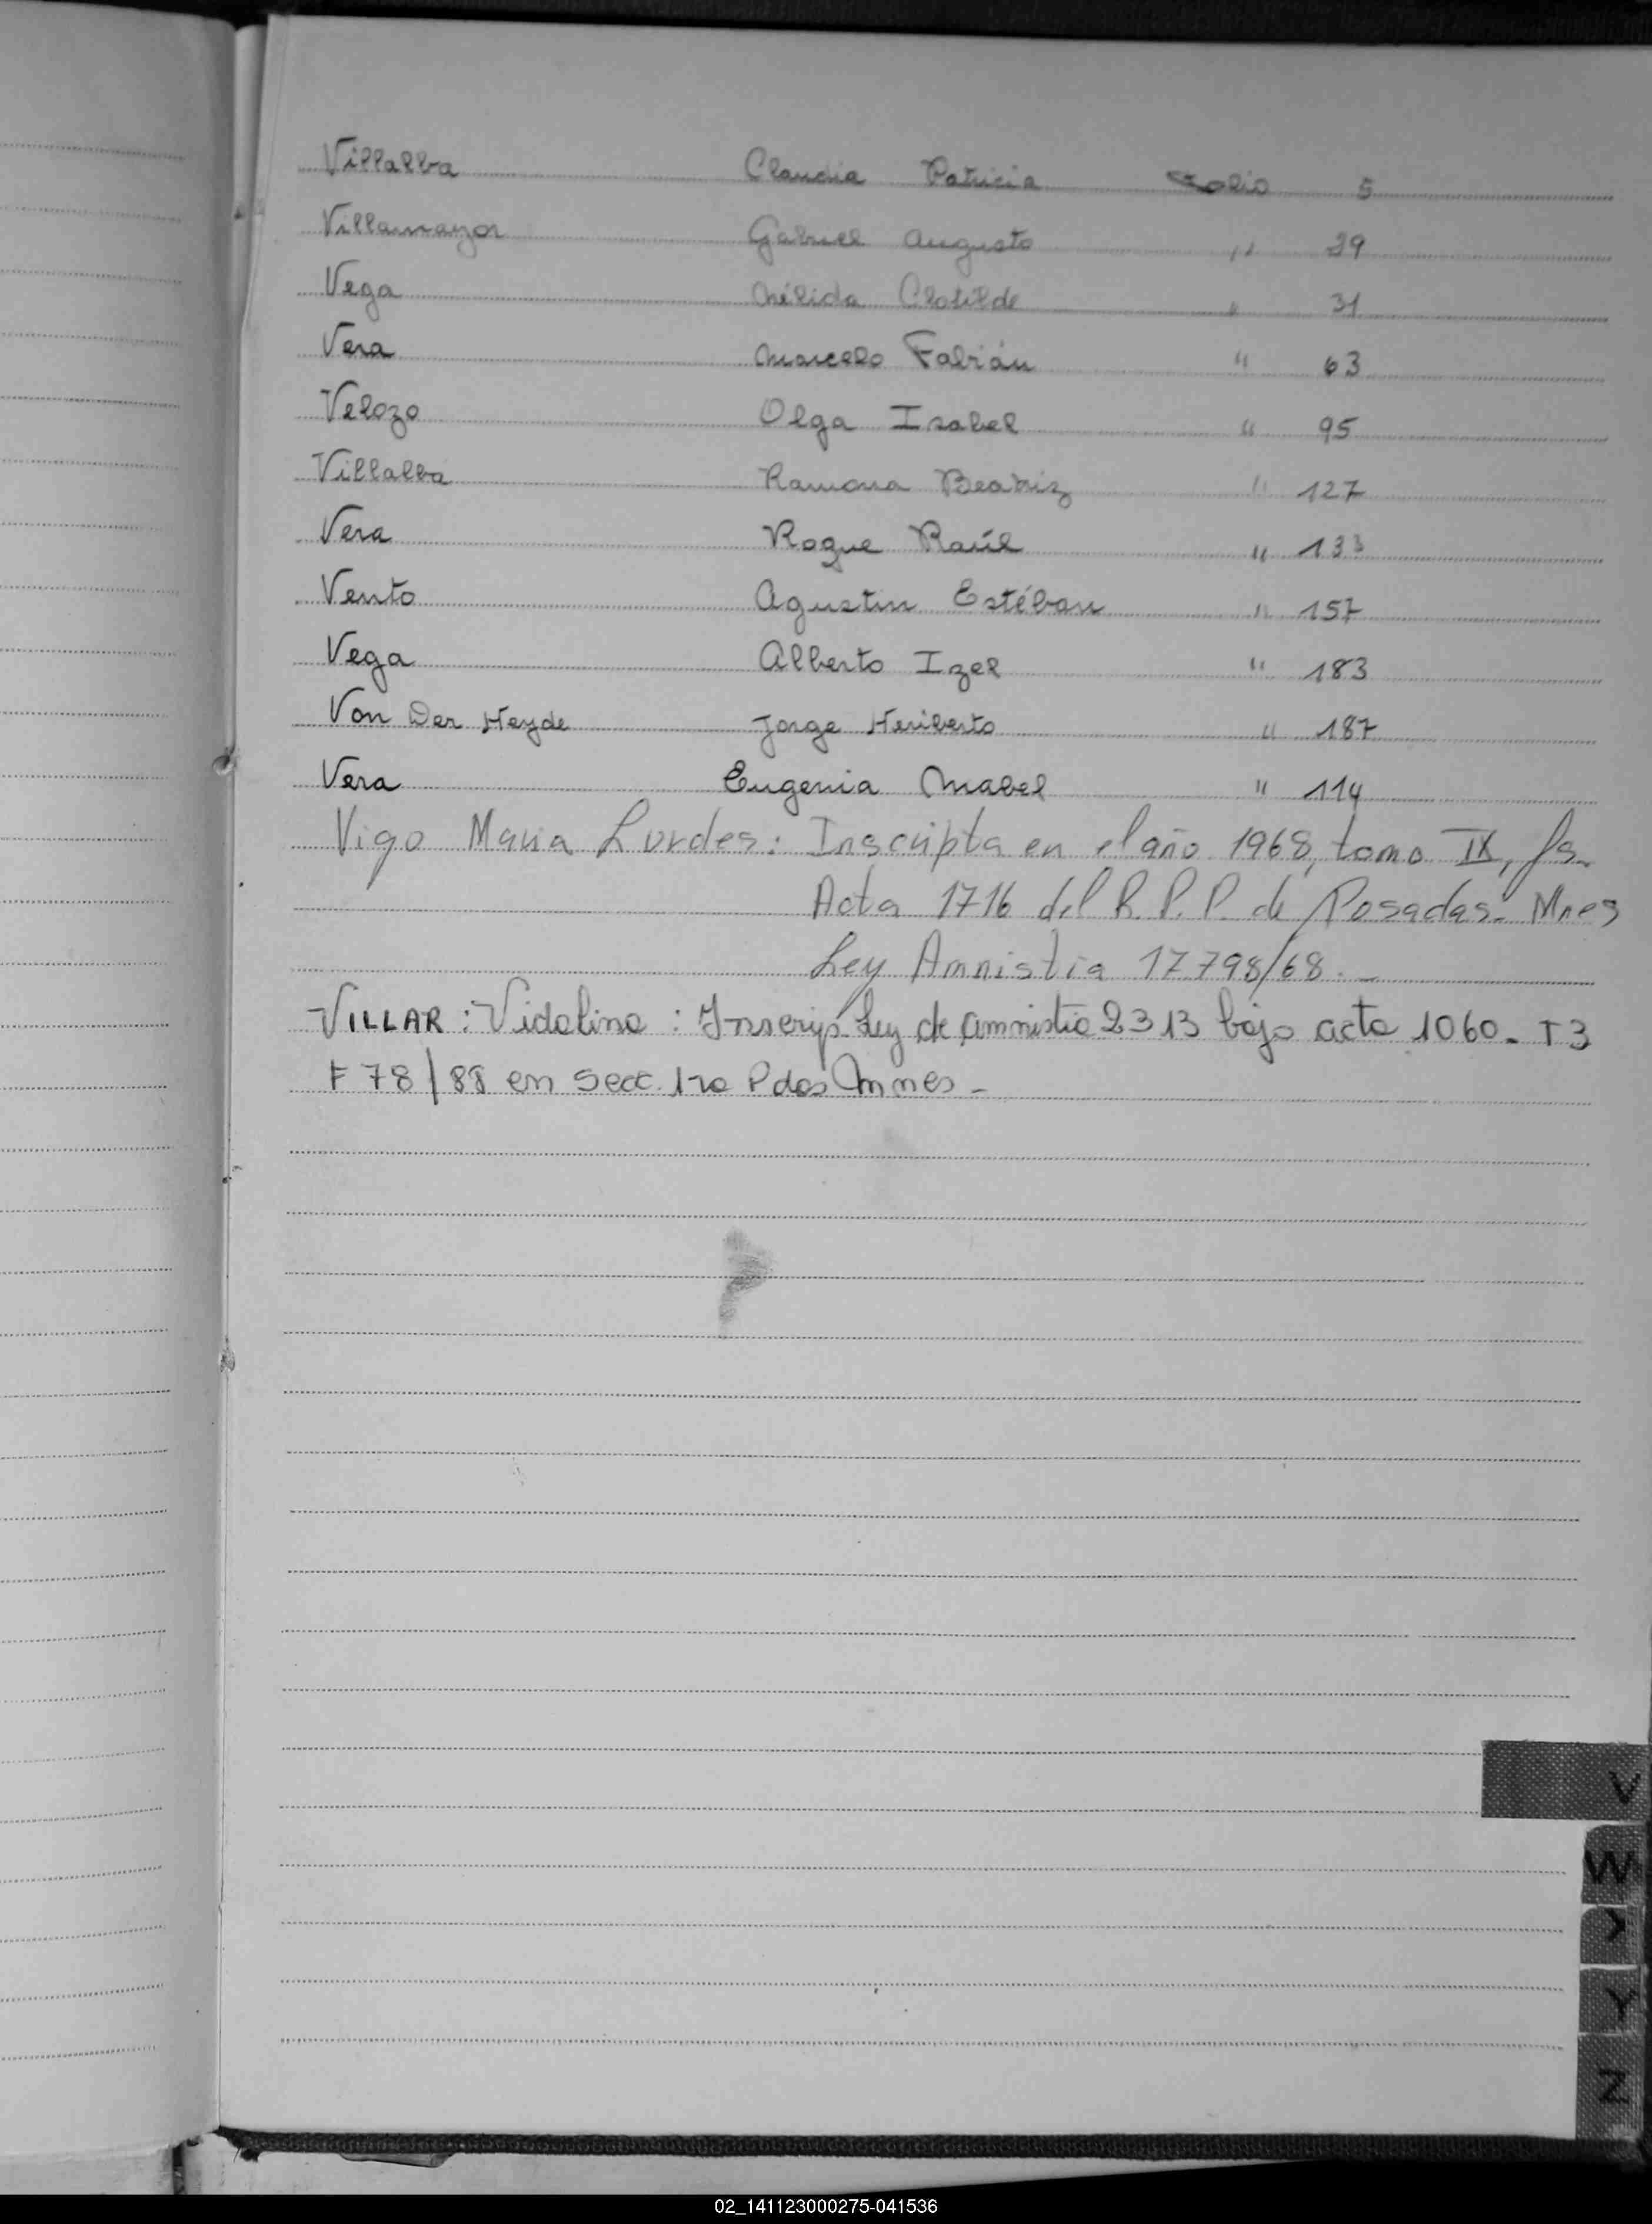 Villalba Claudia Patricia Folio 5
Villamayor Gabriel Augusto " 29
Vega Nélida Clotilde " 31
Vera Marcelo Fabián " 63
Velozo Olga Isabel " 95
Villalba Ramona Beatriz " 127
Vera Roque Raúl " 133
Vento Agustin Estéban " 157
Vega Alberto Izel " 183
Von Der Heyde Jorge Heriberto " 187
Vera Eugenia Mabel " 114
Vigo Maria Lurdes: Inscripta en el año 1968, tomo IX, fs.
Acta 1716 del R.P.P. de Posadas- Mnes
Ley Amnistia 17798/68.-
VILLAR: Vidalina: Inscrip. Ley de amnistia 2313 bajo acta 1060- T3
F 78/88 en secc. 1ra Pdas Mnes-
V
W
Y
Y
Z
02_141123000275-041536